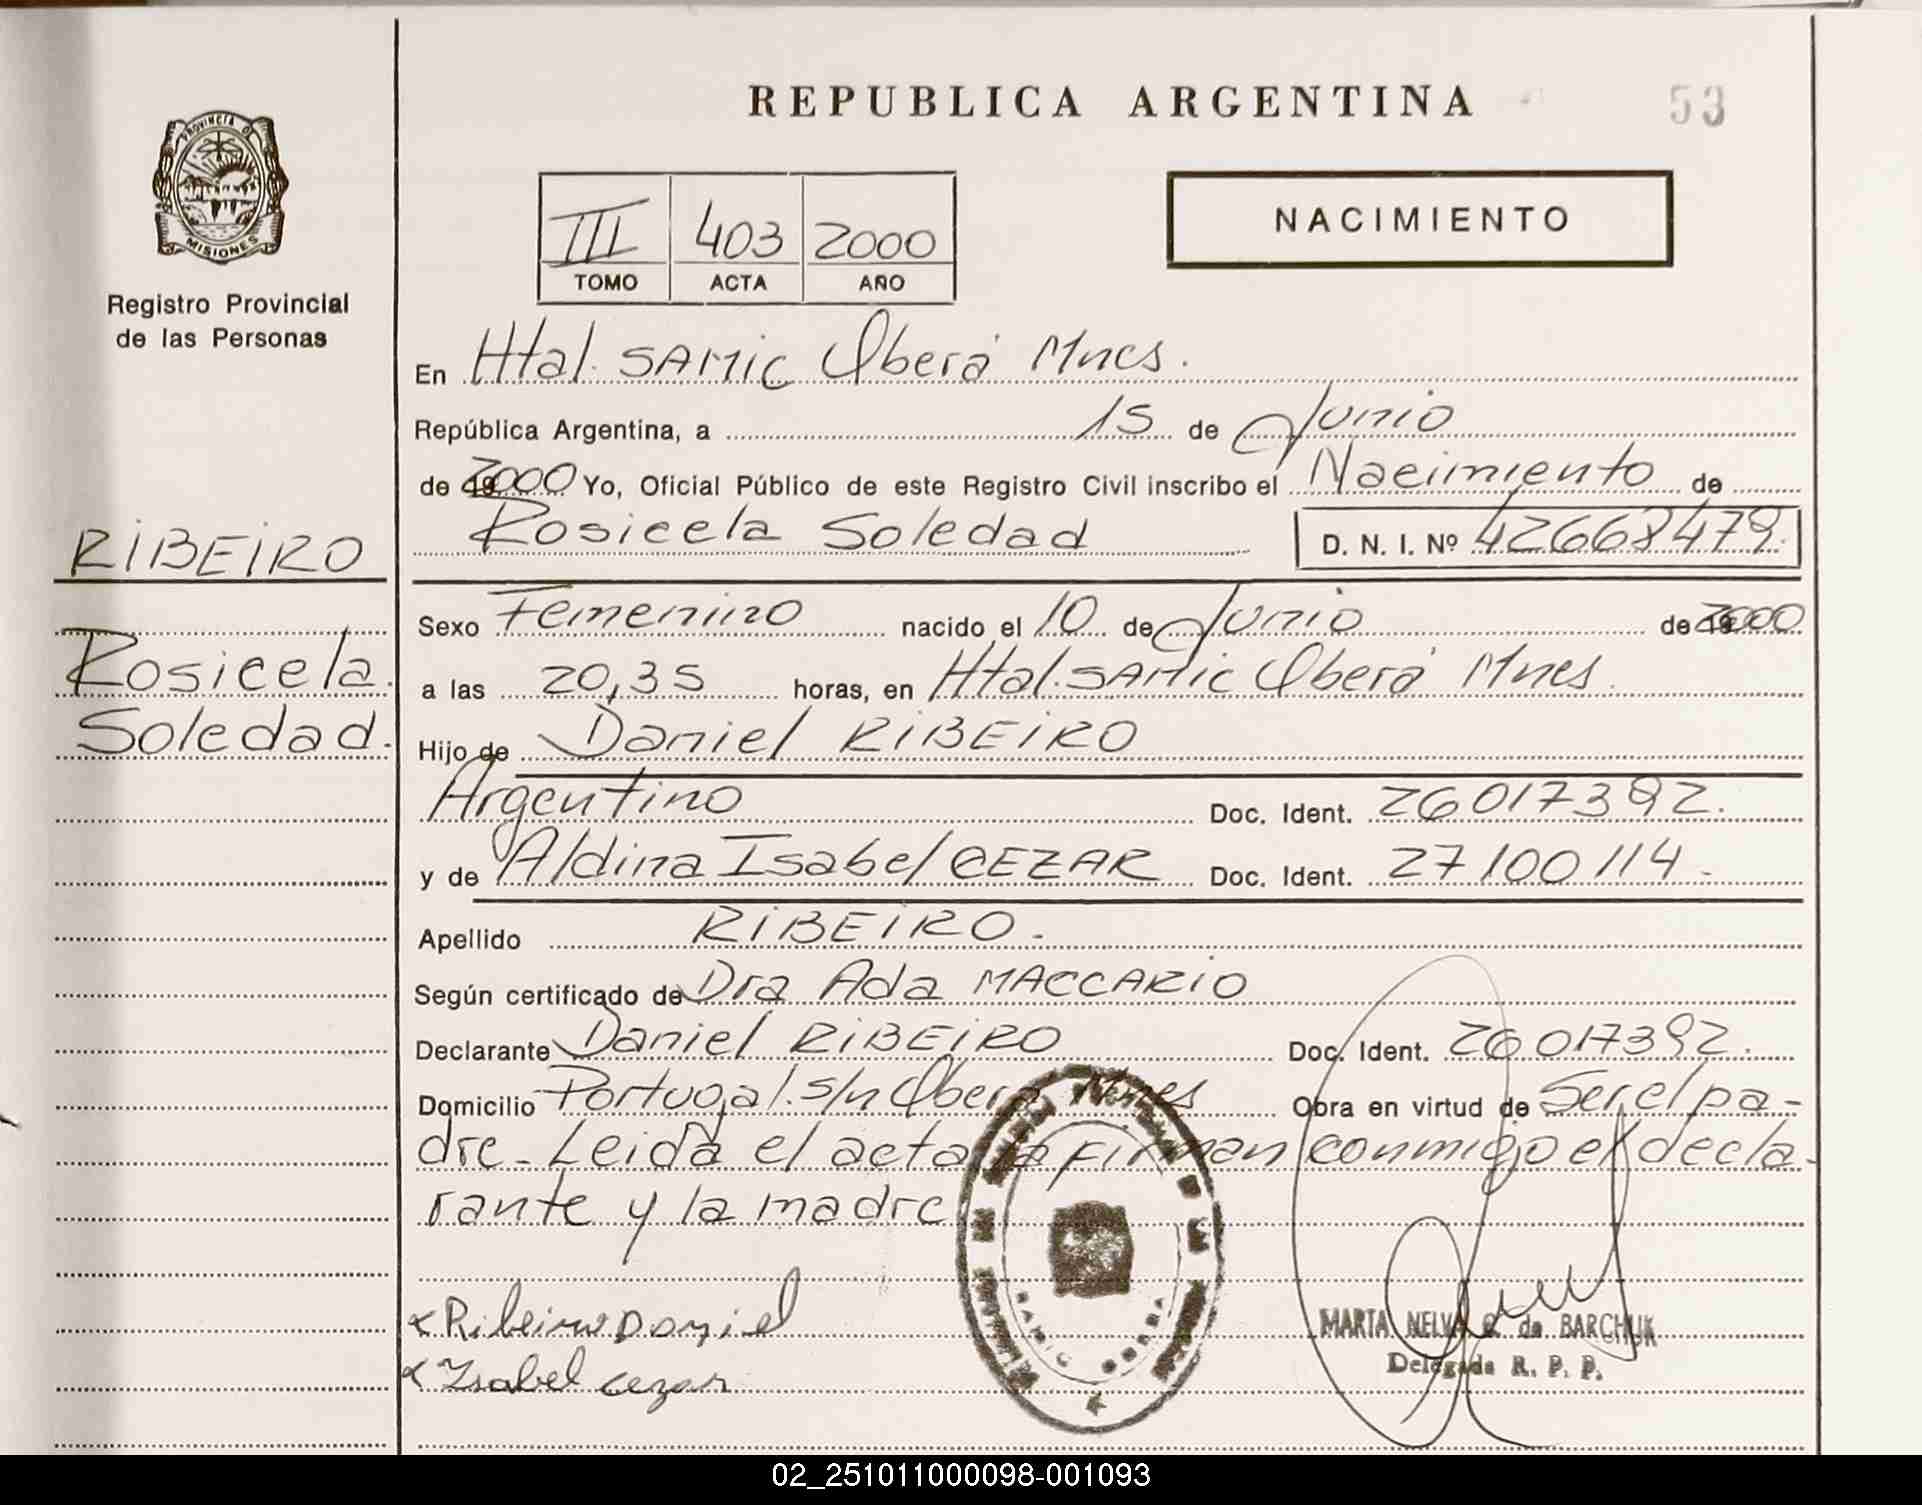 REPUBLICA ARGENTINA
53
PROVINCIA DE
MISIONES
Registro Provincial
de las Personas
III 403 2000
TOMO ACTA AÑO
NACIMIENTO
En Htal. SAMIC Oberá Mnes.
República Argentina, a 15 de Junio
de 2000 Yo, Oficial Público de este Registro Civil inscribo el Nacimiento de
Rosicela Soledad D. N. I. Nº 42668479.
RIBEIRO
Rosicela
Soledad.
Sexo Femenino nacido el 10 de Junio de 2000
a las 20,35 horas, en Htal. SAMIC Oberá Mnes.
Hijo de Daniel RIBEIRO
Argentino Doc. Ident. 26017392.
y de Aldina Isabel CEZAR Doc. Ident. 27100114.
Apellido RIBEIRO.
Según certificado de Dra Ada MACCARIO
Declarante Daniel RIBEIRO Doc. Ident. 26017392.
Domicilio Portugal s/n Oberá Mnes Obra en virtud de Ser el pa-
dre - Leida el acta la firman conmigo el decla-
rante y la madre
Ribeiro Daniel
Isabel cezar
SAMIC OBERA
MARTA NELVA de BARCHUK
Delegada R. P. P.
02_251011000098-001093